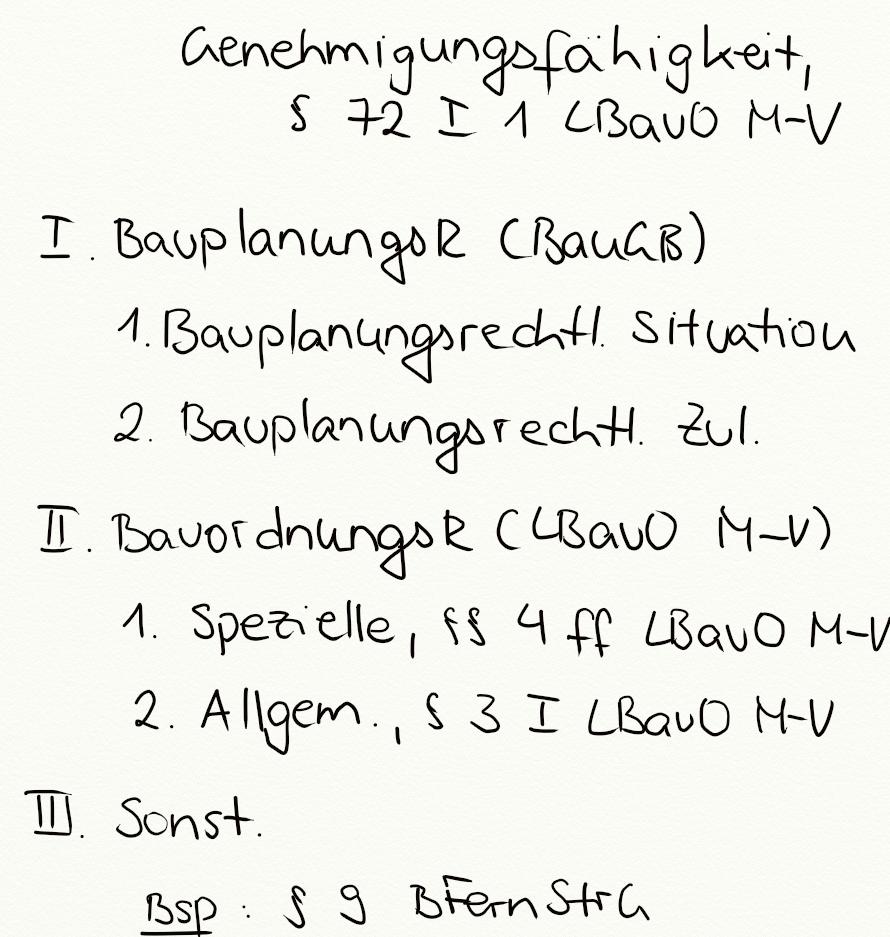 Genehmigungsfähigkeit,
§ 72 I 1 LBauO M-V
I. BauplanungsR (BauGB)
1. Bauplanungsrechtl. Situation
2. Bauplanungsrechtl. Zul.
II. BauordnungsR (LBauO M-V)
1. Spezielle, §§ 4 ff LBauO M-V
2. Allgem., § 3 I LBauO M-V
III. Sonst.
Bsp: § 9 BFernStrG